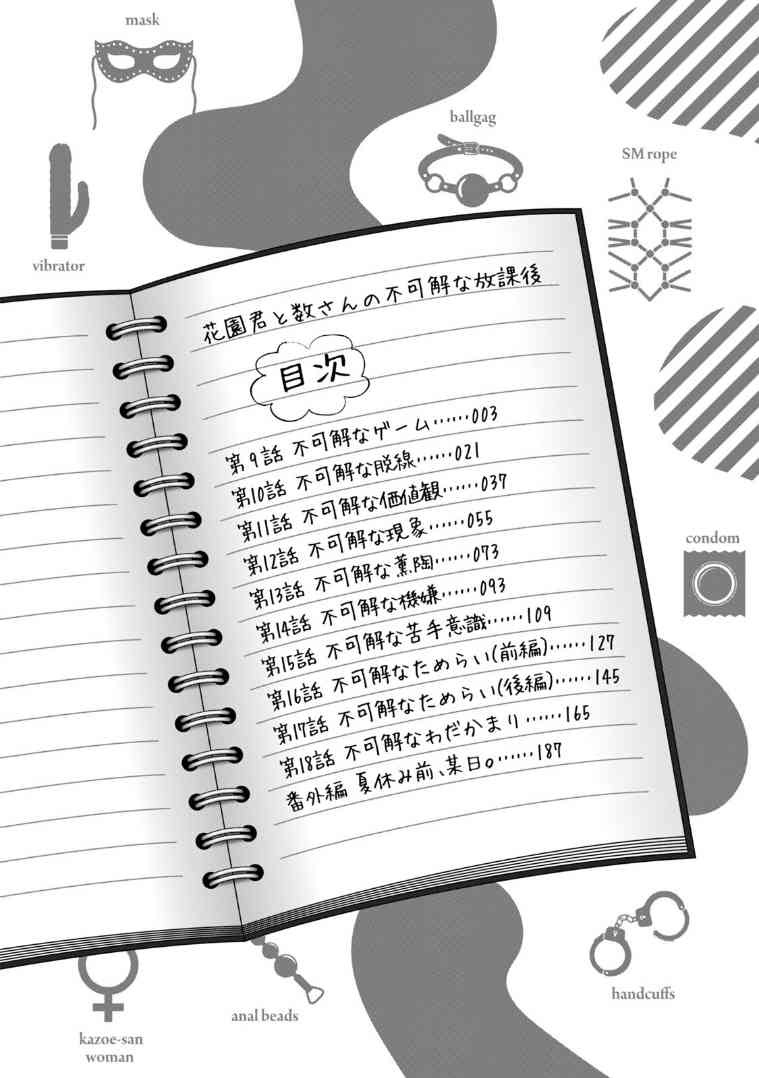 mask
ballgag
SM rope
vibrator
花園君と数さんの不可解な放課後
目次
第9話 不可解なゲーム……003
第10話 不可解な脱線……021
第11話 不可解な価値観……037
第12話 不可解な現象……055
第13話 不可解な薫陶……073
第14話 不可解な機嫌……093
第15話 不可解な苦手意識……109
第16話 不可解なためらい(前編)……127
第17話 不可解なためらい(後編)……145
第18話 不可解なわだかまり……165
番外編 夏休み前、某日。……187
condom
handcuffs
anal beads
kazoe-san
woman